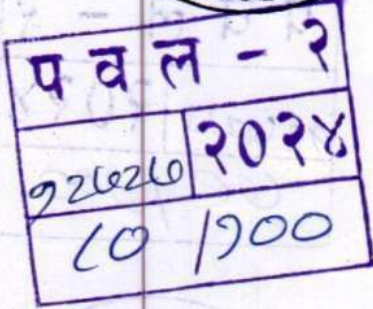 प व ल - २
१२७२७ २०२४
८० /१००